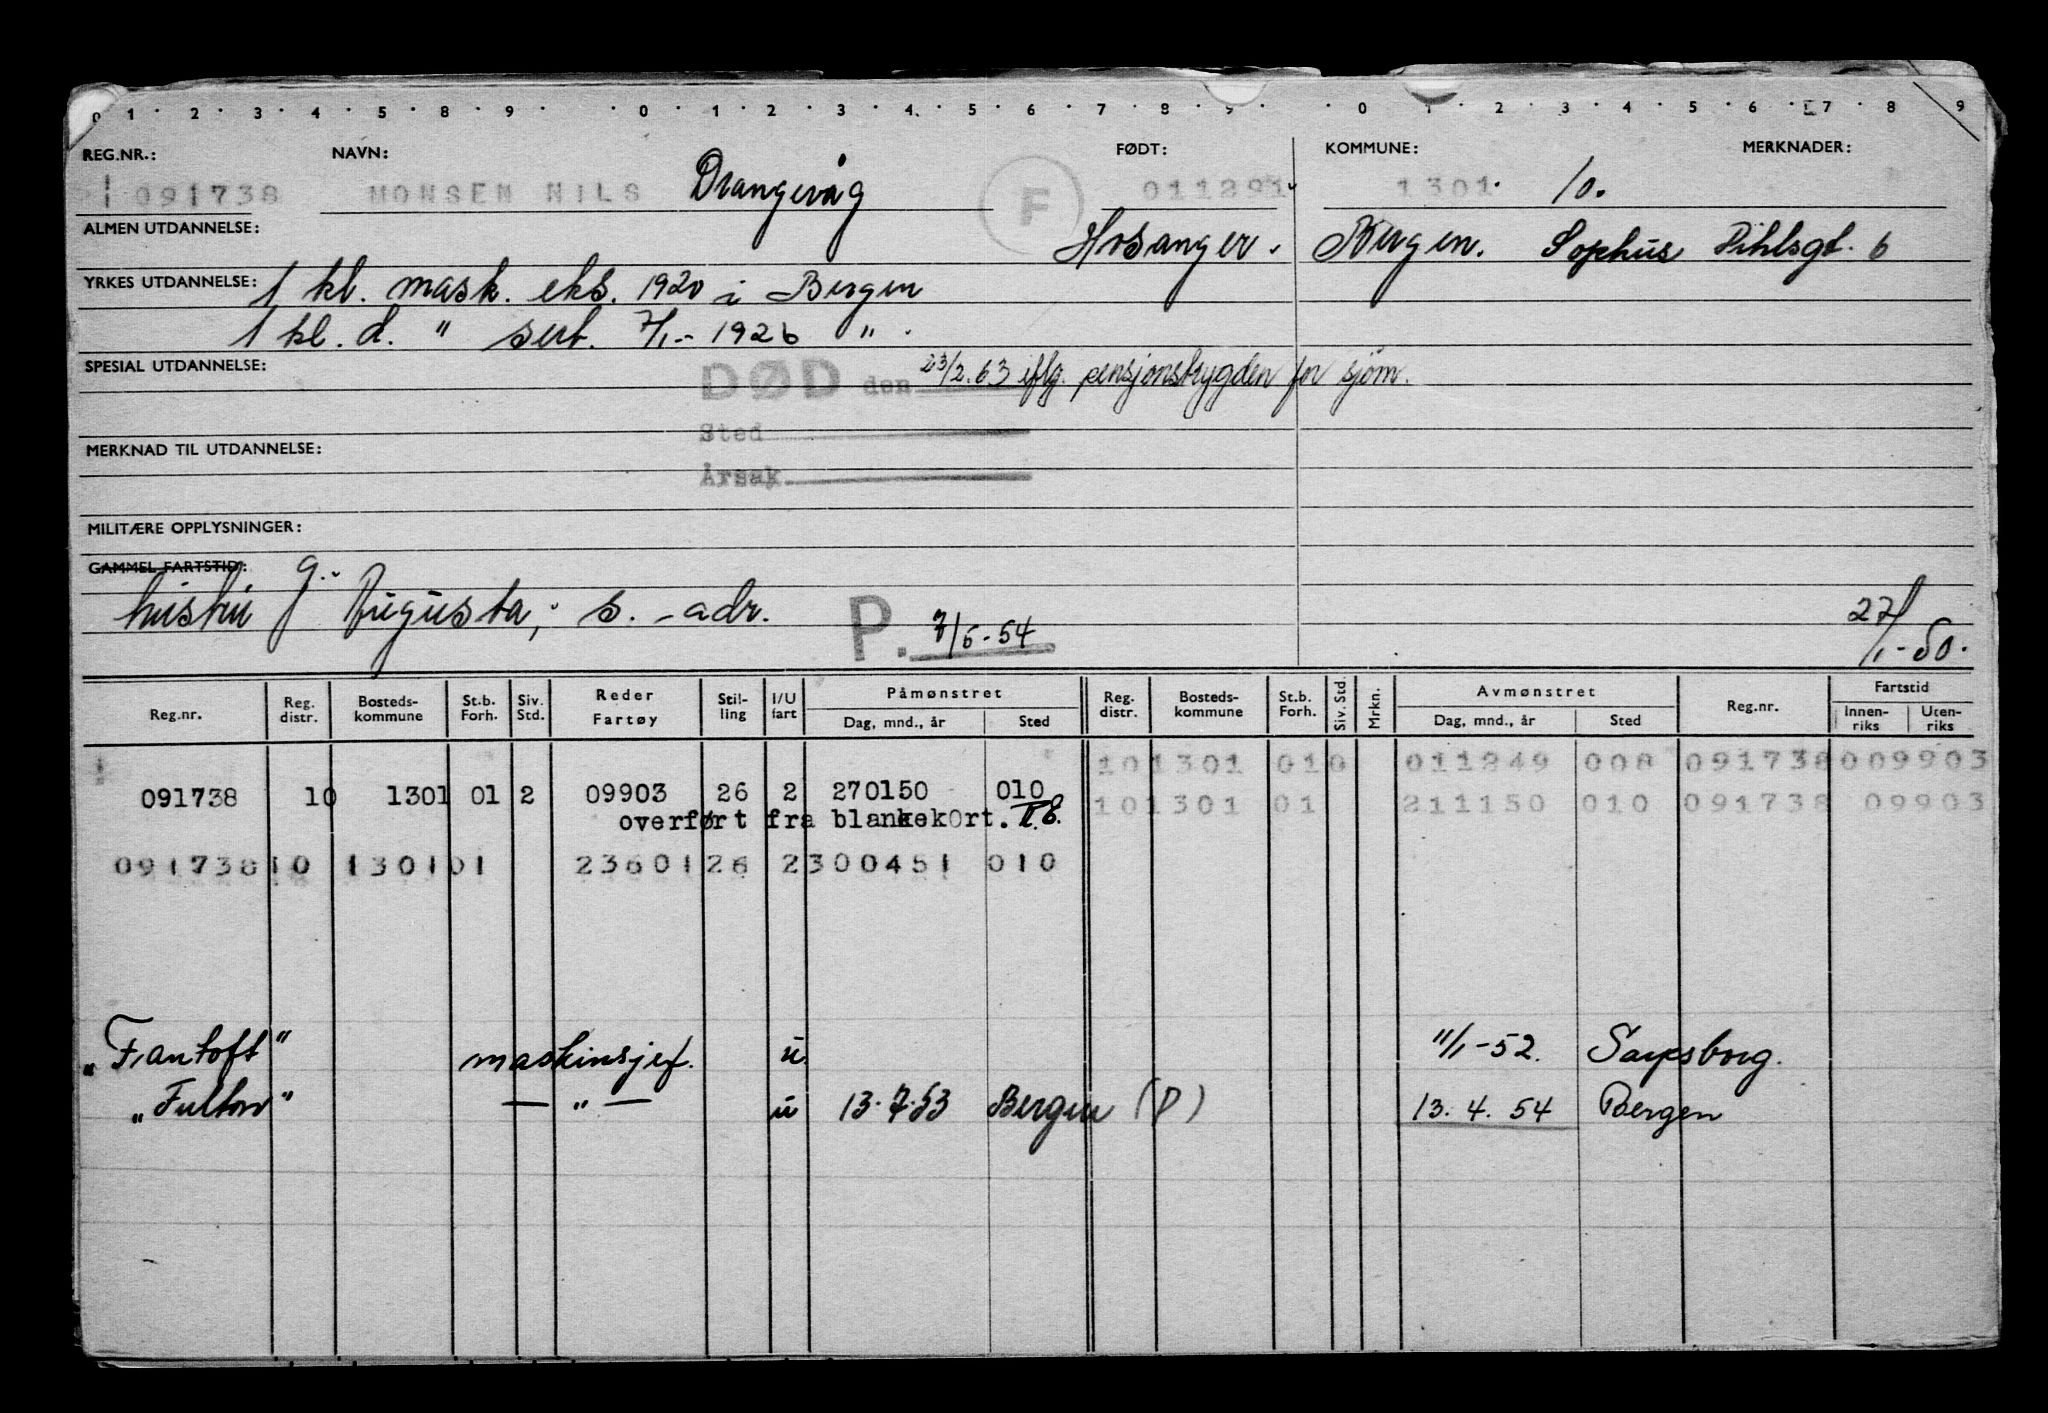 0 1 · 2 · 3 · 4 · 5 · 8 · 9 · · 0 · 1 · 2 · 3 · 4 · 5 · 6 · 7 · 8 · 9 · · 0 · 1 · 2 · 3 · 4 · 5 · 6 · 7 · 8 · 9
REG.NR.: NAVN: FØDT: KOMMUNE: MERKNADER:
091738 MONSEN NILS Drangevåg F 011291 1301 10.
ALMEN UTDANNELSE: Hosanger. Bergen. Sophus Pihlsgt. 6
YRKES UTDANNELSE: 1 kl. mask. eks. 1920 i Bergen
1 kl. d. " sert. 7/1- 1926 " .
SPESIAL UTDANNELSE: DØD den 23/2.63 iflg. pensjonstrygden for sjöm.
Sted
MERKNAD TIL UTDANNELSE:
Årsak
MILITÆRE OPPLYSNINGER:
GAMMEL FARTSTID:
hustru g. Augusta, s. - adr. P. 7/5-54 27/1-50.
Reg.nr. Reg. distr. Bosteds- kommune St.b. Forh. Siv. Std. Reder Fartøy Stil- ling I/U fart Påmønstret Dag, mnd., år Sted Reg. distr. Bosteds- kommune St.b. Forh. Siv. Std. Mrkn. Avmønstret Dag, mnd., år Sted Reg.nr. Fartstid Innen- riks Uten- riks
10 1301 010 011249 008 091738 009903
091738 10 1301 01 2 09903 26 2 270150 010 10 1301 01 211150 010 091738 09903
overført fra blankekort.
091738 10 1301 01 23601 26 2 300451 010
"Fantoft" maskinsjef. u 11/1-52. Sarpsborg.
"Fulton" — " — u 13.7.53 Bergen (P) 13.4.54 Bergen